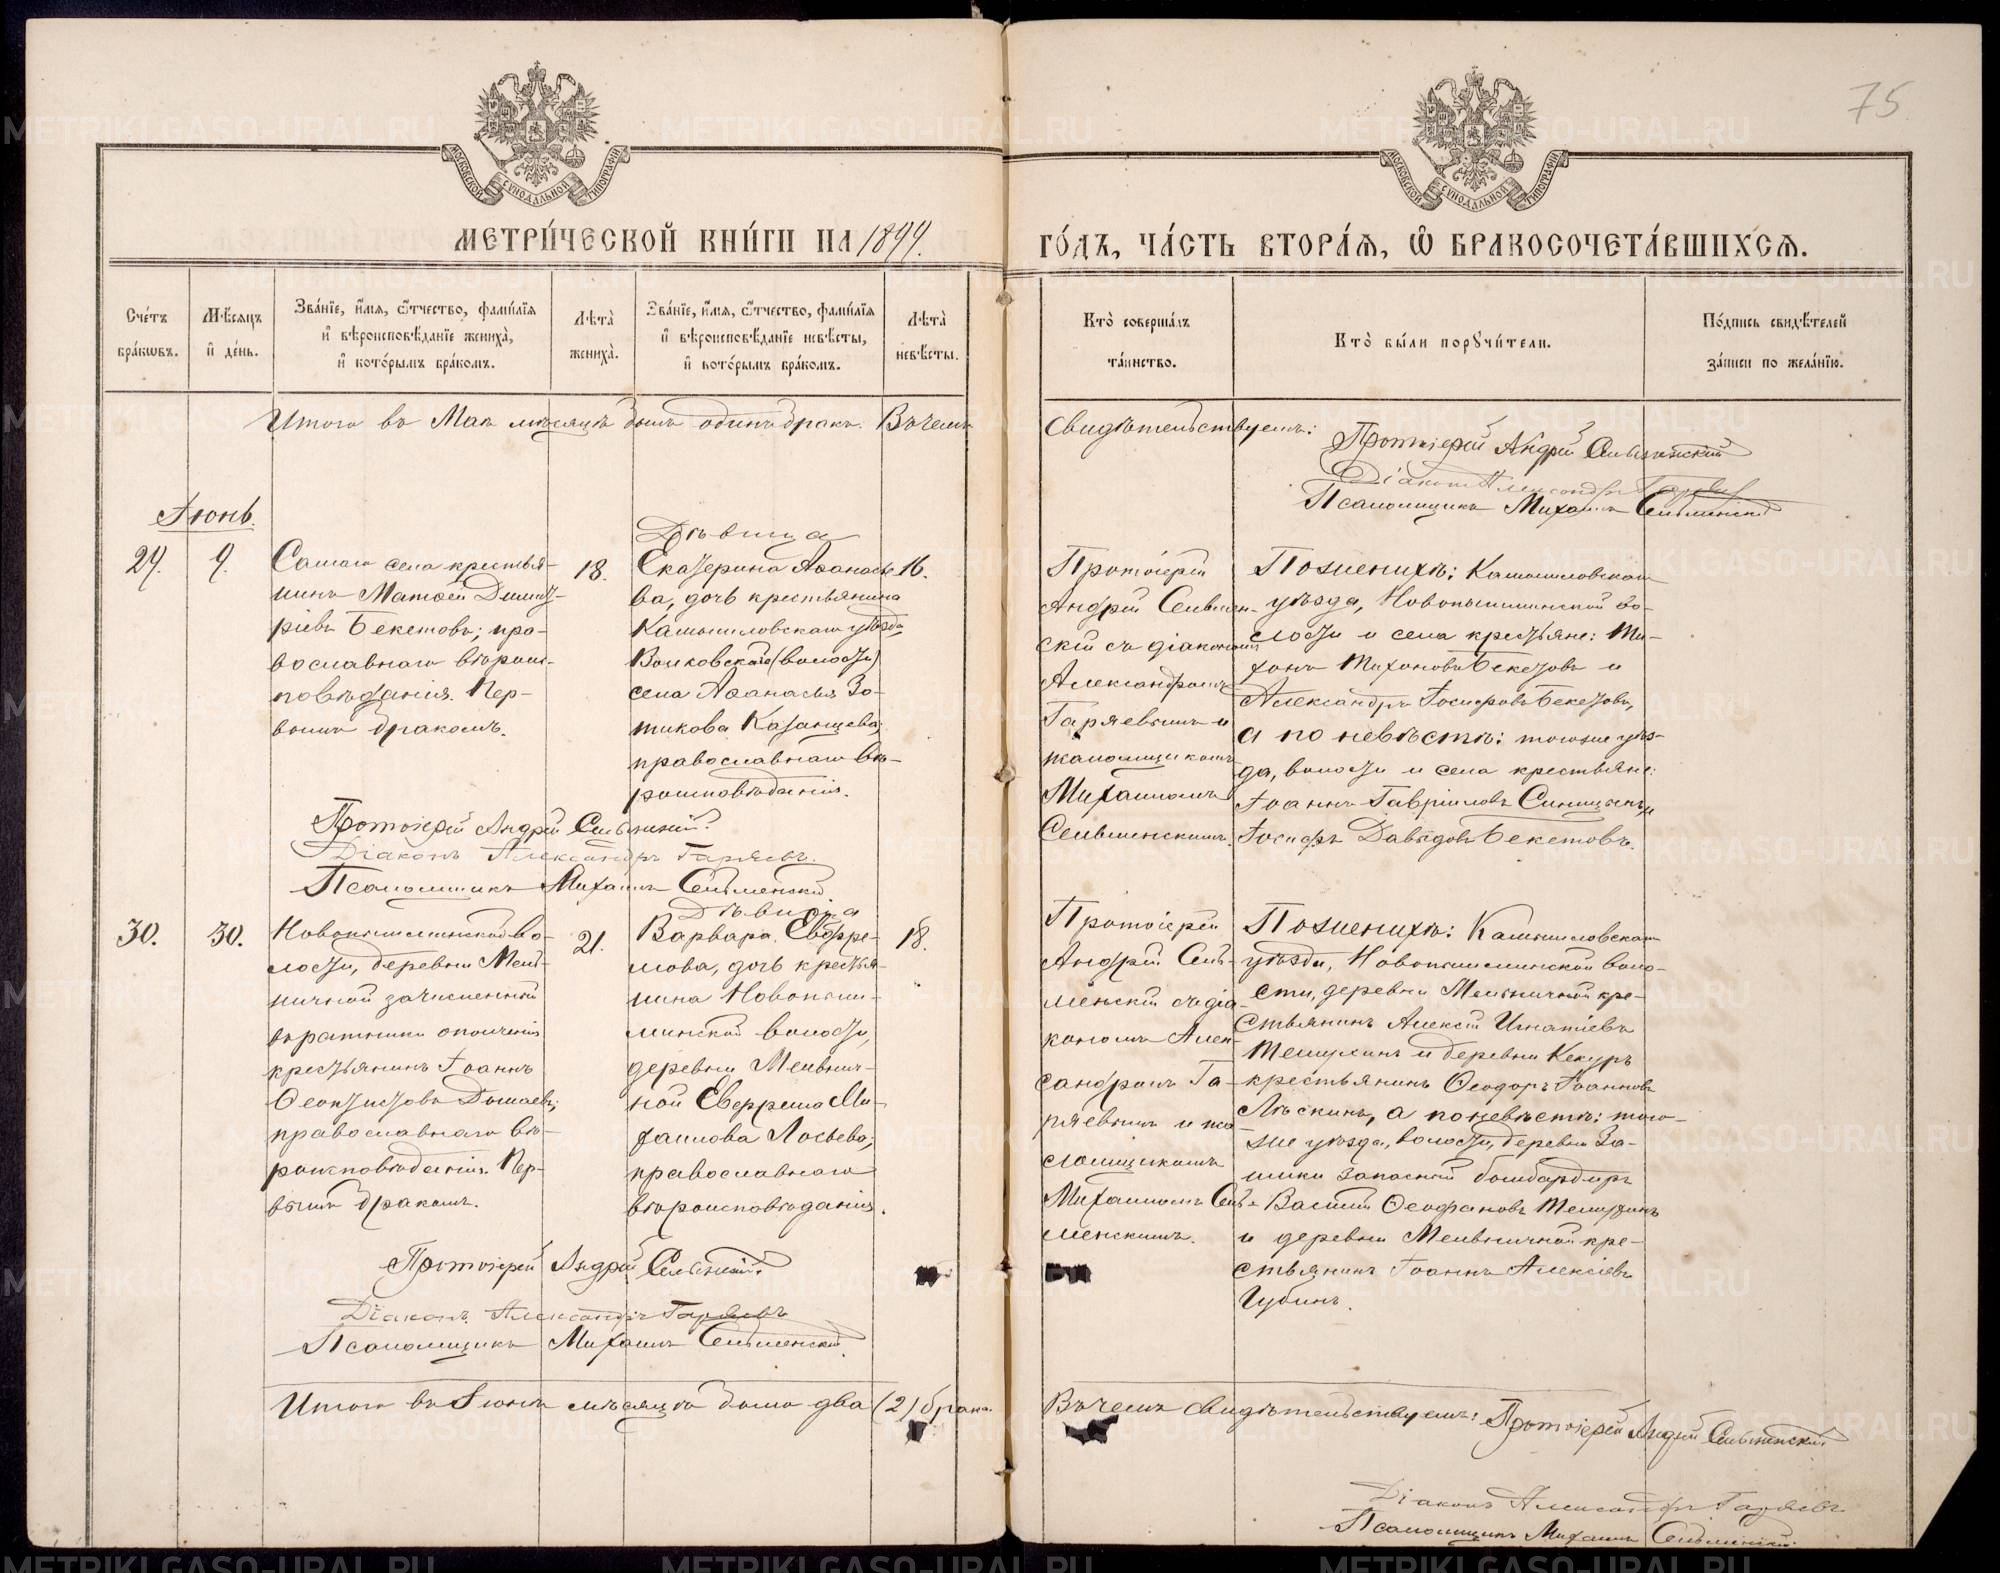 75
МОСКОВСКОЙ СУНОДАЛЬНОЙ ТИПОГРАФІИ
МОСКОВСКОЙ СУНОДАЛЬНОЙ ТИПОГРАФІИ
МЕТРИ́ЧЕСКОЙ КНИ́ГИ НА 1899.
ГО́ДЪ, ЧА́СТЬ ВТОРА́Ѧ, Ѽ БРАКОСОЧЕТА́ВШИХСѦ.
Сче́тъ бра́кѡвъ.
Мѣ́сяцъ и҆ де́нь.
Зва́нїе, и҆́мѧ, ѻ҆́тчество, фами́лїѧ
и҆ вѣроисповѣ́данїе жениха̀,
и҆ кото́рымъ бра́комъ.
Лѣта̀ жениха̀.
Зва́нїе, и҆́мѧ, ѻ҆́тчество, фами́лїѧ
и҆ вѣроисповѣ́данїе невѣ́сты,
и҆ кото́рымъ бра́комъ.
Лѣта̀ невѣ́сты.
Кто̀ соверша́лъ
та́инство.
Кто̀ бы́ли порꙋчи́тели.
По́дпись свидѣ́телей
за́писи по жела́нїю.
Итого въ Маѣ мѣсяцѣ былъ одинъ бракъ. Въ чемъ
свидѣтельствуемъ:
Протоіерей Андрей Сельменскій
Діаконъ Александръ Гаряевъ
Псаломщикъ Михаилъ Сельменскій
Іюнь.
29.
9.
Самаго села крестья-
нинъ Матѳей Димит-
ріевъ Бекетовъ; пра-
вославнаго вѣроис-
повѣданія. Пер-
вымъ бракомъ.
18.
Дѣвица
Екатерина Аѳанасье-
ва, дочь крестьянина
Камышловскаго уѣзда,
Волковской (волости)
села Аѳанасья Зо-
тикова Казанцева;
православнаго вѣ-
роисповѣданія.
16.
Протоіерей
Андрей Сельмен-
скій съ діакономъ
Александромъ
Гаряевымъ и
псаломщикомъ
Михаиломъ
Сельменскимъ.
По женихѣ: Камышловскаго
уѣзда, Новопышминской во-
лости и села крестьяне: Ти-
хонъ Тихоновъ Бекетовъ и
Александръ Іосифовъ Бекетовъ,
а по невѣстѣ: тогоже уѣз-
да, волости и села крестьяне:
Іоаннъ Гавріиловъ Синицынъ и
Іосифъ Давидовъ Бекетовъ.
Протоіерей Андрей Сельменскій.
Діаконъ Александръ Гаряевъ.
Псаломщикъ Михаилъ Сельменскій
30.
30.
Новопышминской во-
лости, деревни Мель-
ничной зачисленный
въ ратники ополченія
крестьянинъ Іоаннъ
Ѳеоктистовъ
православнаго вѣ-
роисповѣданія. Пер-
вымъ бракомъ.
21.
Дѣвица
Варвара Евѳре-
мова, дочь крестья-
нина Новопыш-
минской волости,
деревни Мельнич-
ной Евѳрема Ми-
хаилова Лосьева;
православнаго
вѣроисповѣданія.
18.
Протоіерей
Андрей Сель-
менскій съ діа-
кономъ Алек-
сандромъ Га-
ряевымъ и пса-
ломщикомъ
Михаиломъ Сель-
менскимъ.
По женихѣ: Камышловскаго
уѣзда, Новопышминской воло-
сти, деревни Мельничной кре-
стьянинъ Алексій Игнатіевъ
и деревни Кекуръ
крестьянинъ Ѳеодоръ Іоанновъ
Лѣскинъ, а по невѣстѣ: того-
же уѣзда, волости, деревни За-
имки запасный бомбардиръ
Василій Ѳеофановъ
и деревни Мельничной кре-
стьянинъ Іоаннъ Алексіевъ
Губинъ.
Протоіерей Андрей Сельменскій.
Діаконъ Александръ Гаряевъ
Псаломщикъ Михаилъ Сельменскій.
Итого въ Іюнѣ мѣсяцѣ было два (2) брака.
Въ чемъ свидѣтельствуемъ: Протоіерей Андрей Сельменскій
Діаконъ Александръ Гаряевъ.
Псаломщикъ Михаилъ Сельменскій.
METRIKI.GASO-URAL.RU